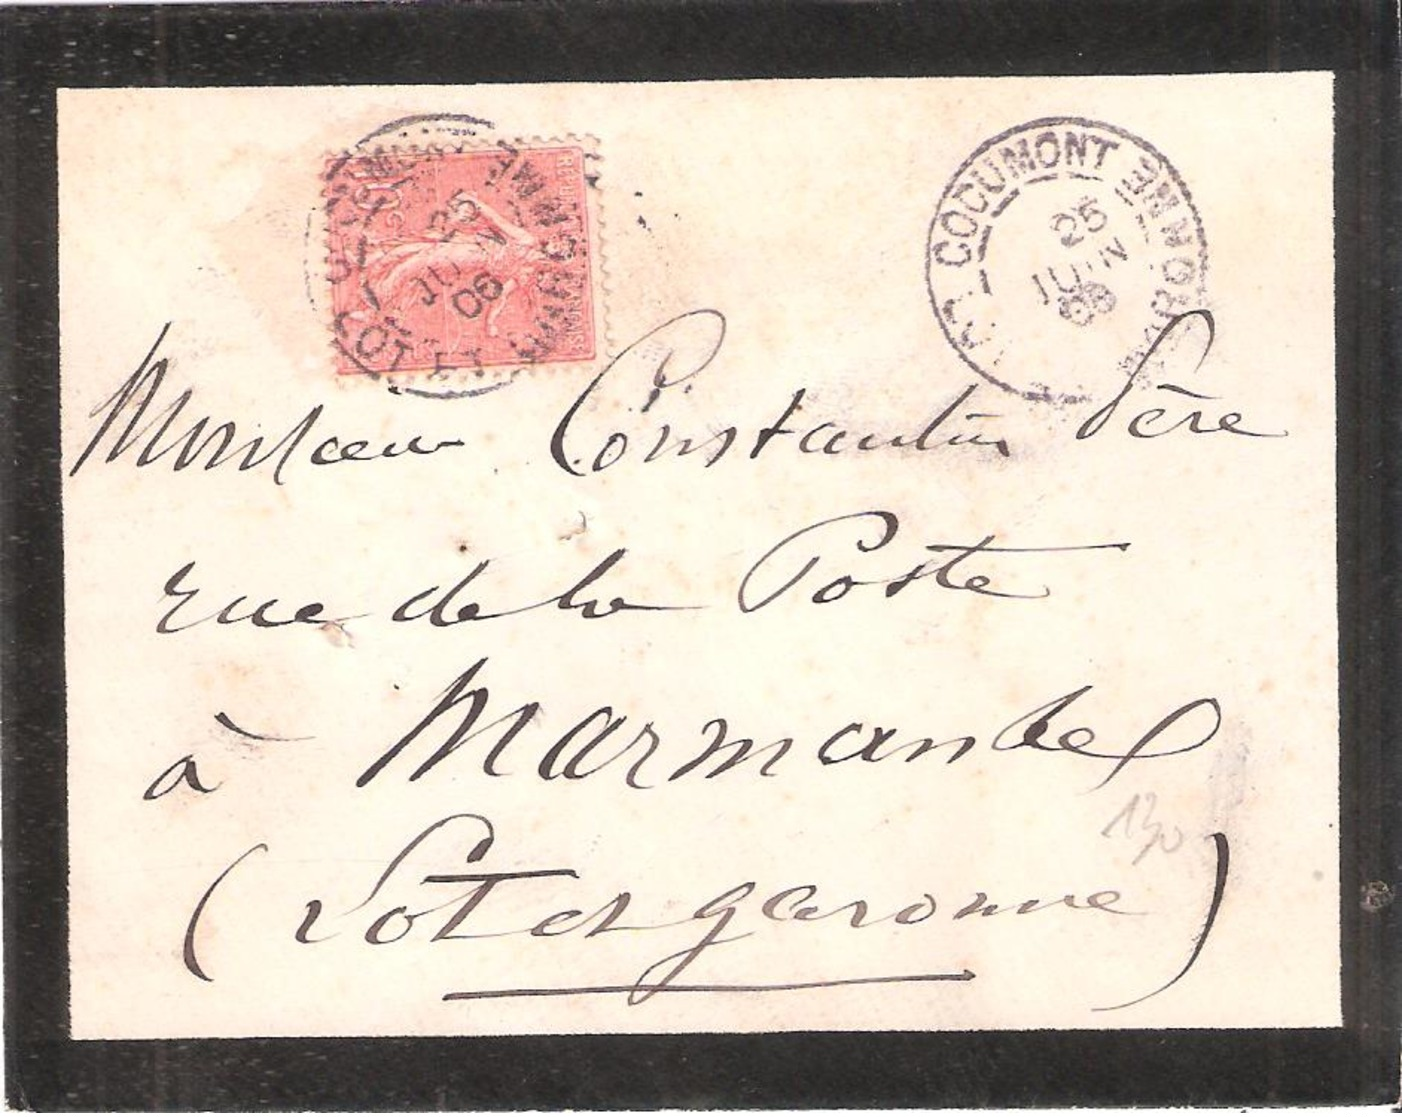 COCUMONT
25
JUIN
06
LOT ET GARONNE
COCUMONT
25
JUIN
06
LOT ET GARONNE
10
Monsieur Constantin Père
rue de la Poste
à Marmande
(Lot et garonne)
130